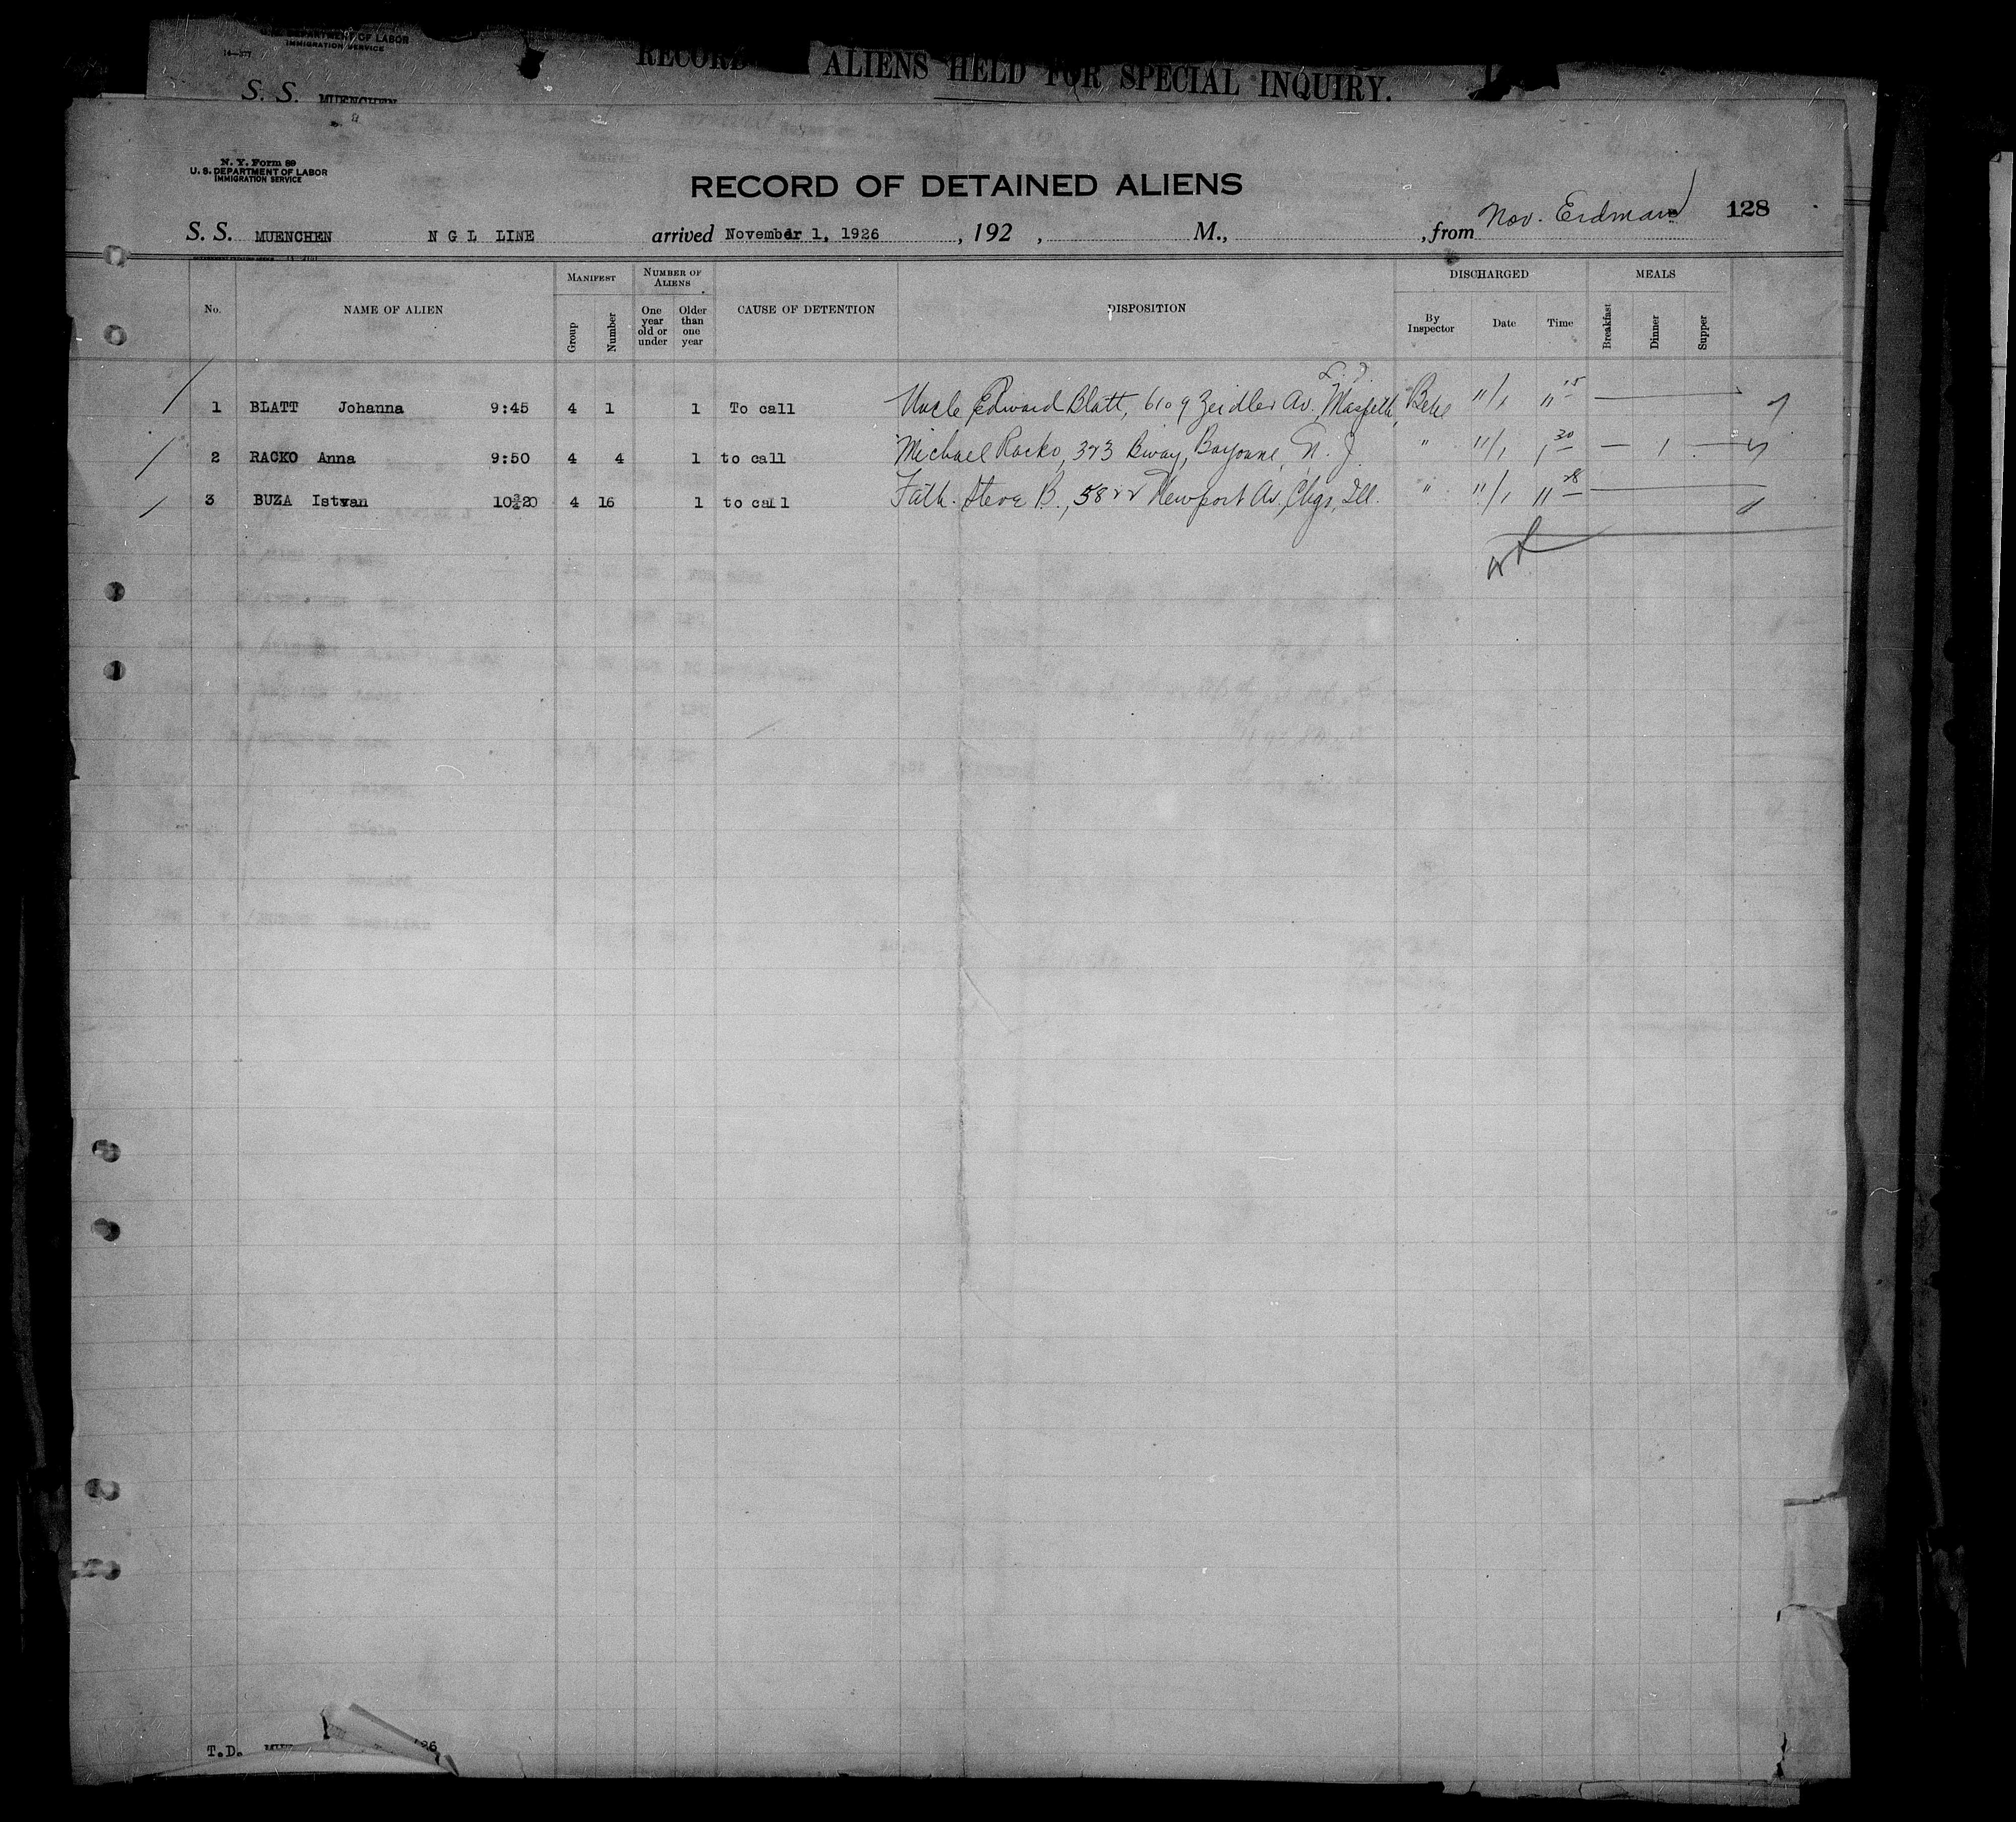 U. S. DEPARTMENT OF LABOR
IMMIGRATION SERVICE
RECORD ALIENS HELD FOR SPECIAL INQUIRY.
S. S. MUENCHEN
N. Y. Form 89
U. S. DEPARTMENT OF LABOR
IMMIGRATION SERVICE
RECORD OF DETAINED ALIENS
128
S. S. MUENCHEN N G L LINE arrived November 1, 1926, 192 , M., , from Nov. Erdman
No. NAME OF ALIEN MANIFEST Group Number NUMBER OF ALIENS One year old or under Older than one year CAUSE OF DETENTION DISPOSITION DISCHARGED By Inspector Date Time MEALS Breakfast Dinner Supper
L. I.
1 BLATT Johanna 9:45 4 1 1 To call Uncle Edward Blatt, 6109 Zeidler Av., Maspeth, 11/1 11 15
2 RACKO Anna 9:50 4 4 1 to call Michael Racko, 323 Bway, Bayonne, N. J. " 11/1 1 30 — 1 —
3 BUZA Istvan 10:20 4 16 1 to call Fath. Steve B., 5822 Newport Av, Chgo, Ill. " 11/1 11 28
T.D. 26